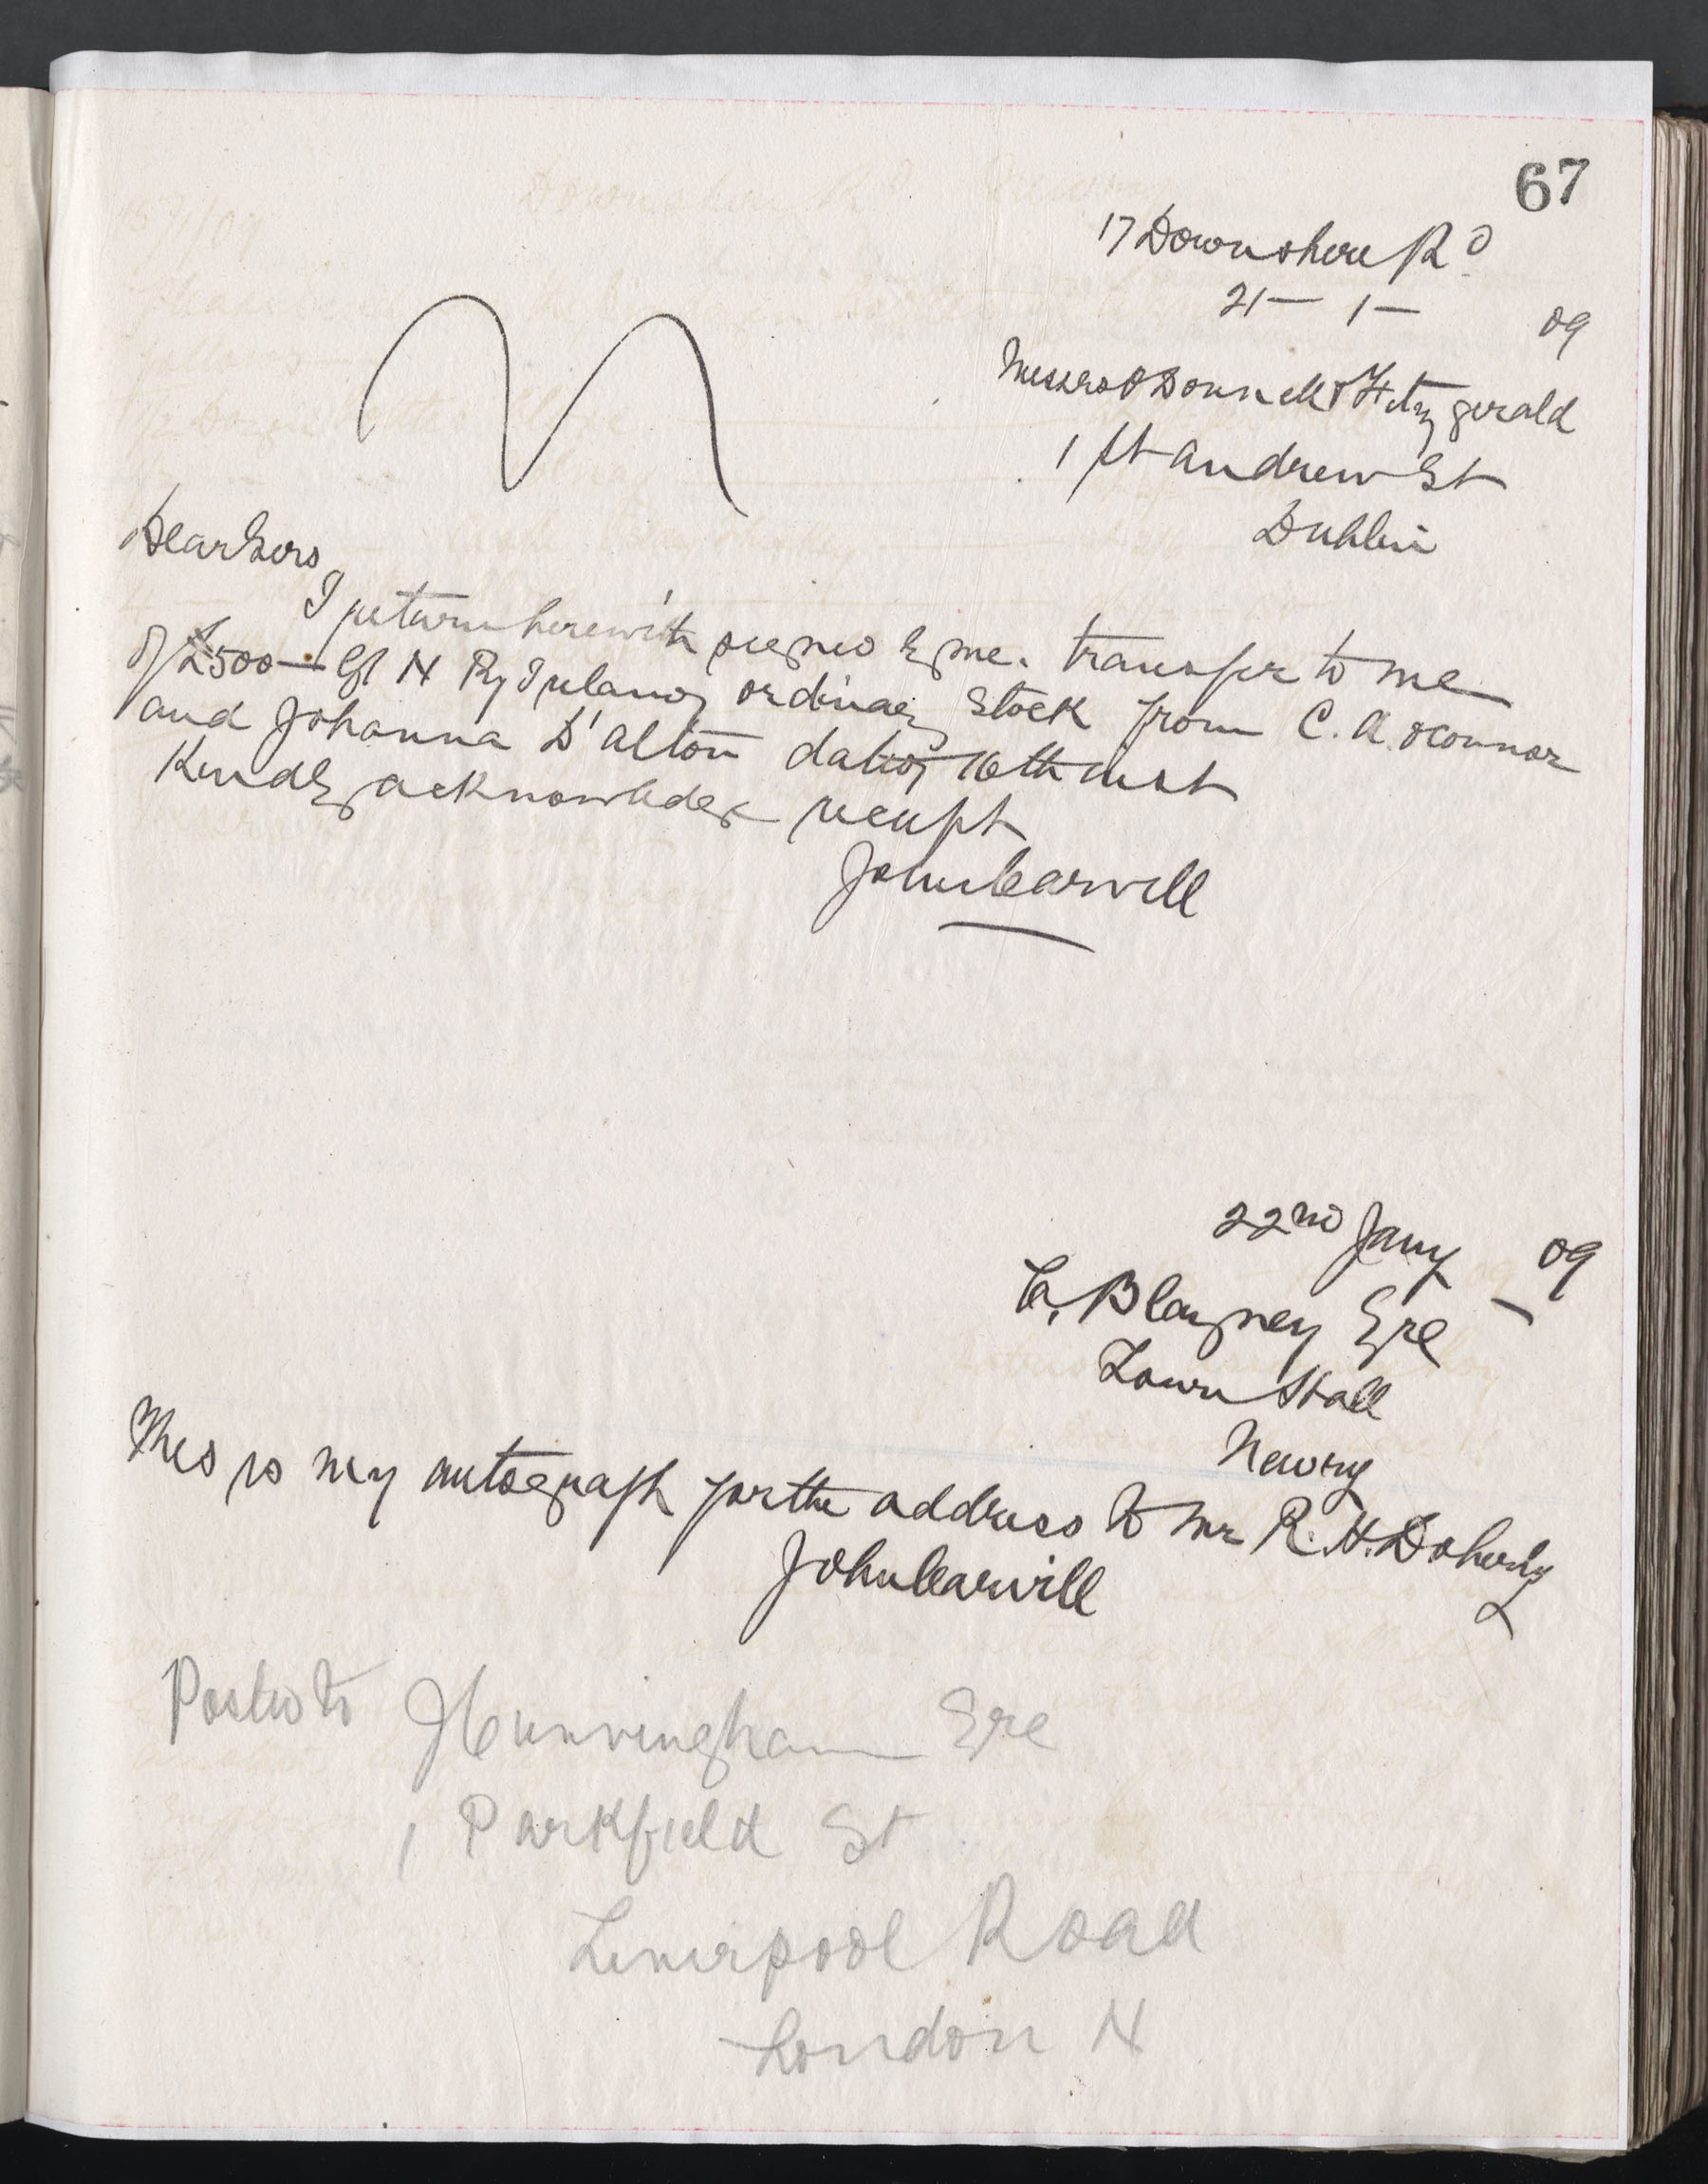 67
17 Downshire Rd
21 – 1 – 09
Messrs O Donnell & Fitzgerald
1 St Andrew St
Dublin
Dear Sirs
I return herewith signed by me. transfer to me
of £500 – Gt N Ry Ireland ordinary Stock from C. A. O'Connor
and Johanna D'Alton dated 16th inst
Kindly acknowledge receipt
John Carvill
22nd Jany 09
C. Blayney Esq
Town Hall
Newry
This is my autograph for the address to Mr R. H. Doherty
John Carvill
Posted to J Cunningham Esq
1 Parkfield St
Liverpool Road
London N